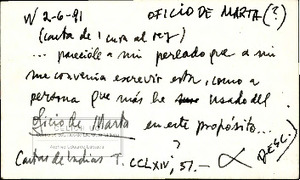 N 2-6-91 OFICIO DE MARTA (?)
(carta de 1 cura al rey)
... parecióle a mi perlado que a mi
me convenía escrevir esta, como a
persona que más he usado del
oficio de Marta en este propósito...
?
Cartas de Indias T. CCLXIV, 57.—
DESC.)